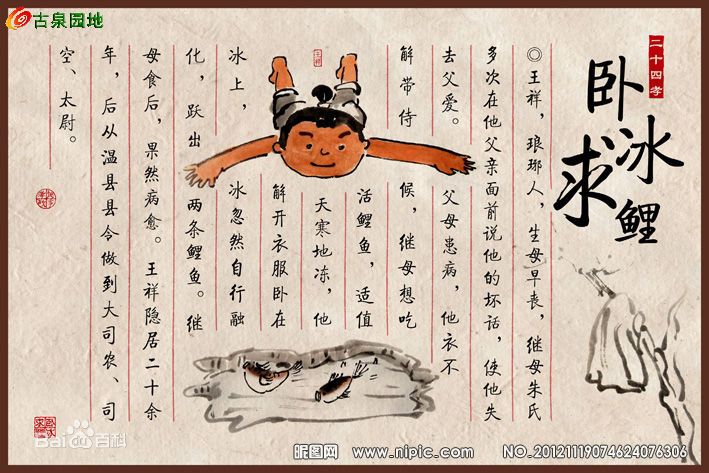 古泉园地
二十四孝
卧冰求鲤
◎王祥，琅琊人，生母早丧，继母朱氏
多次在他父亲面前说他的坏话，使他失
去父爱。父母患病，他衣不
解带侍候，继母想吃
活鲤鱼，适值
天寒地冻，他
解开衣服卧在
冰上，冰忽然自行融
化，跃出两条鲤鱼。继
母食后，果然病愈。王祥隐居二十余
年，后从温县县令做到大司农、司
空、太尉。
Bai百科
昵图网 www.nipic.com NO.20121119074624076306